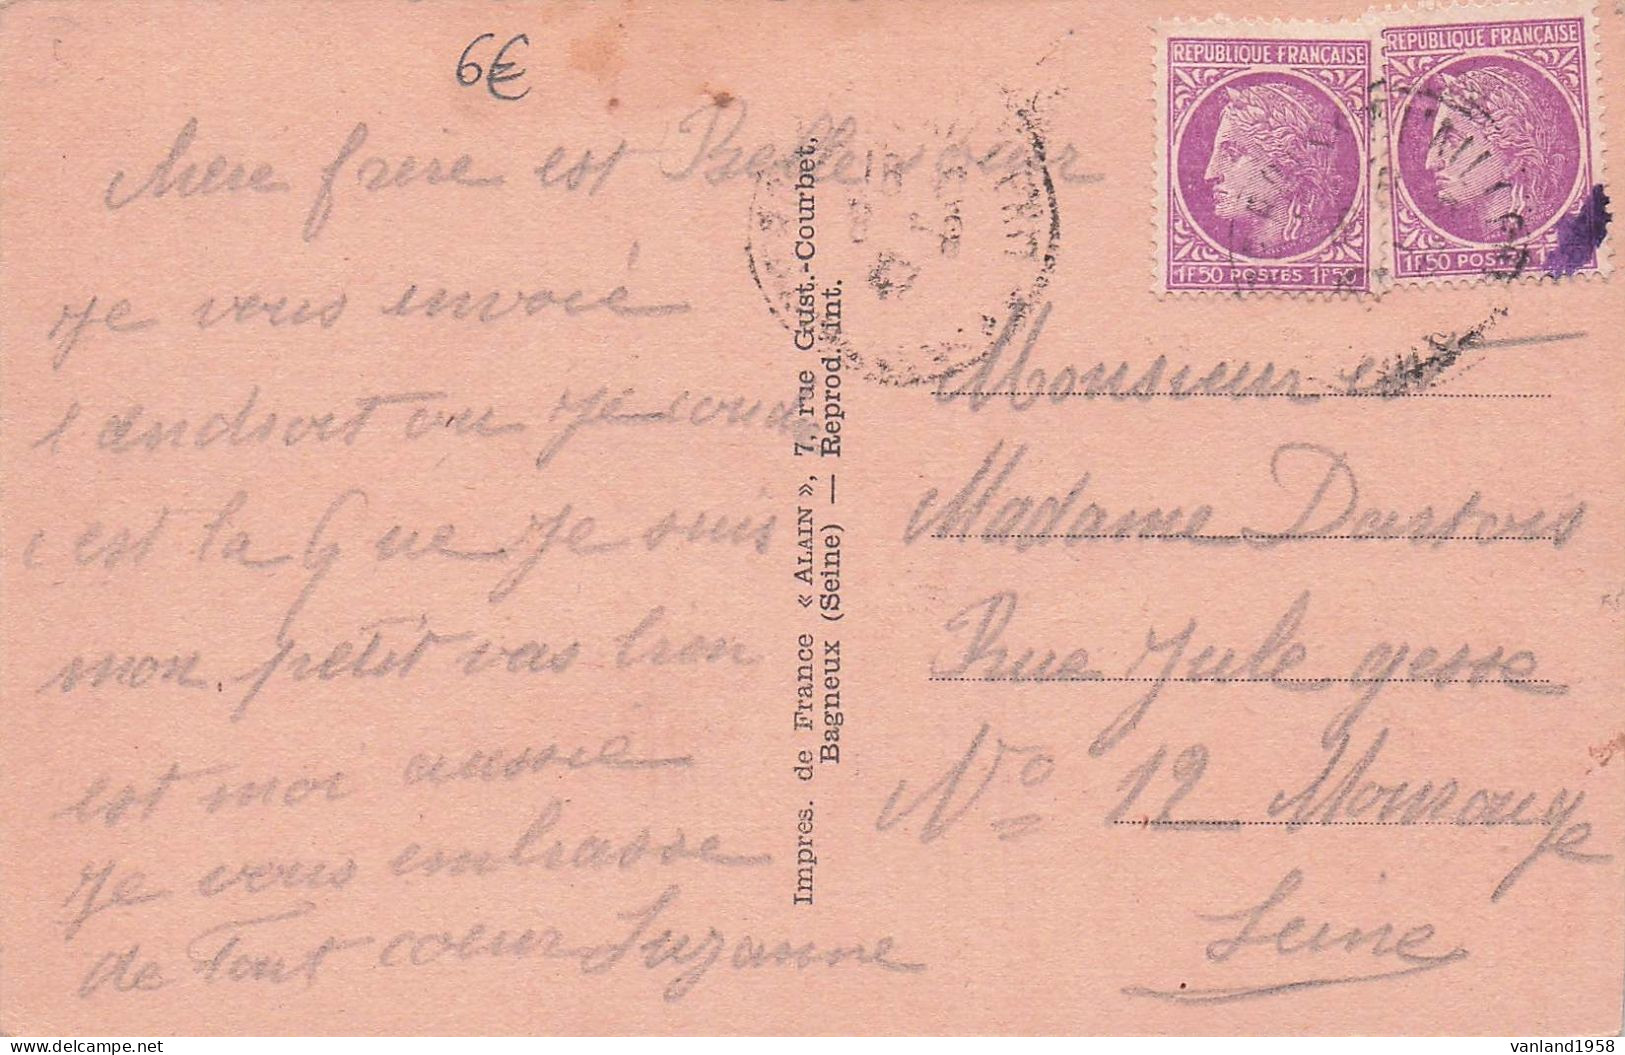 6€
chere frere est Belle soeur
je vous envoié
l endroit ou je couds
c est la que je suis
mon petit vas bien
est moi aussie
je vous embrasse
de tout coeur Suzanne
Impres. de France « ALAIN », 7, rue Gust.-Courbet,
Bagneux (Seine) — Reprod. int.
REPUBLIQUE FRANÇAISE
1F50 POSTES 1F50
REPUBLIQUE FRANÇAISE
1F50 POSTES 1
Monsieur et
Madame Dartois
Rue Jule gesse
No 12 Monrouge
Seine
vanland1958